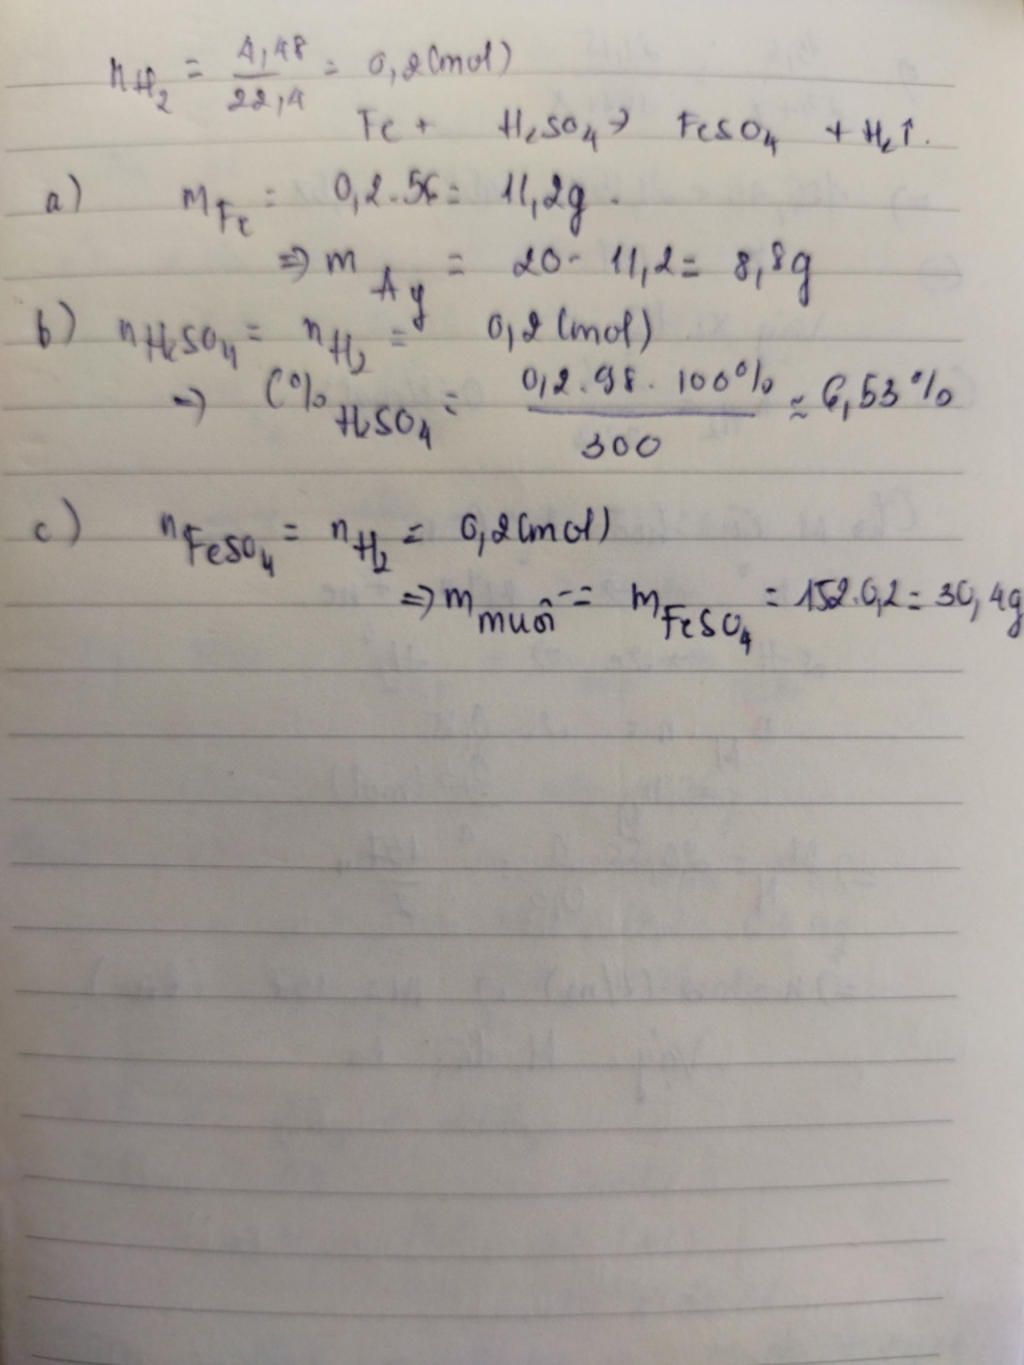 nH₂ = 4,48/22,4 = 0,2(mol)
Fe + H₂SO₄ → FeSO₄ + H₂↑.
a) mFe = 0,2.56 = 11,2g.
⇒ mAg = 20 - 11,2 = 8,8g
b) nH₂SO₄ = nH₂ = 0,2(mol)
→ C%H₂SO₄ = 0,2.98.100%/300 ≈ 6,53%
c) nFeSO₄ = nH₂ = 0,2(mol)
⇒ mmuối = mFeSO₄ = 152.0,2 = 30,4g